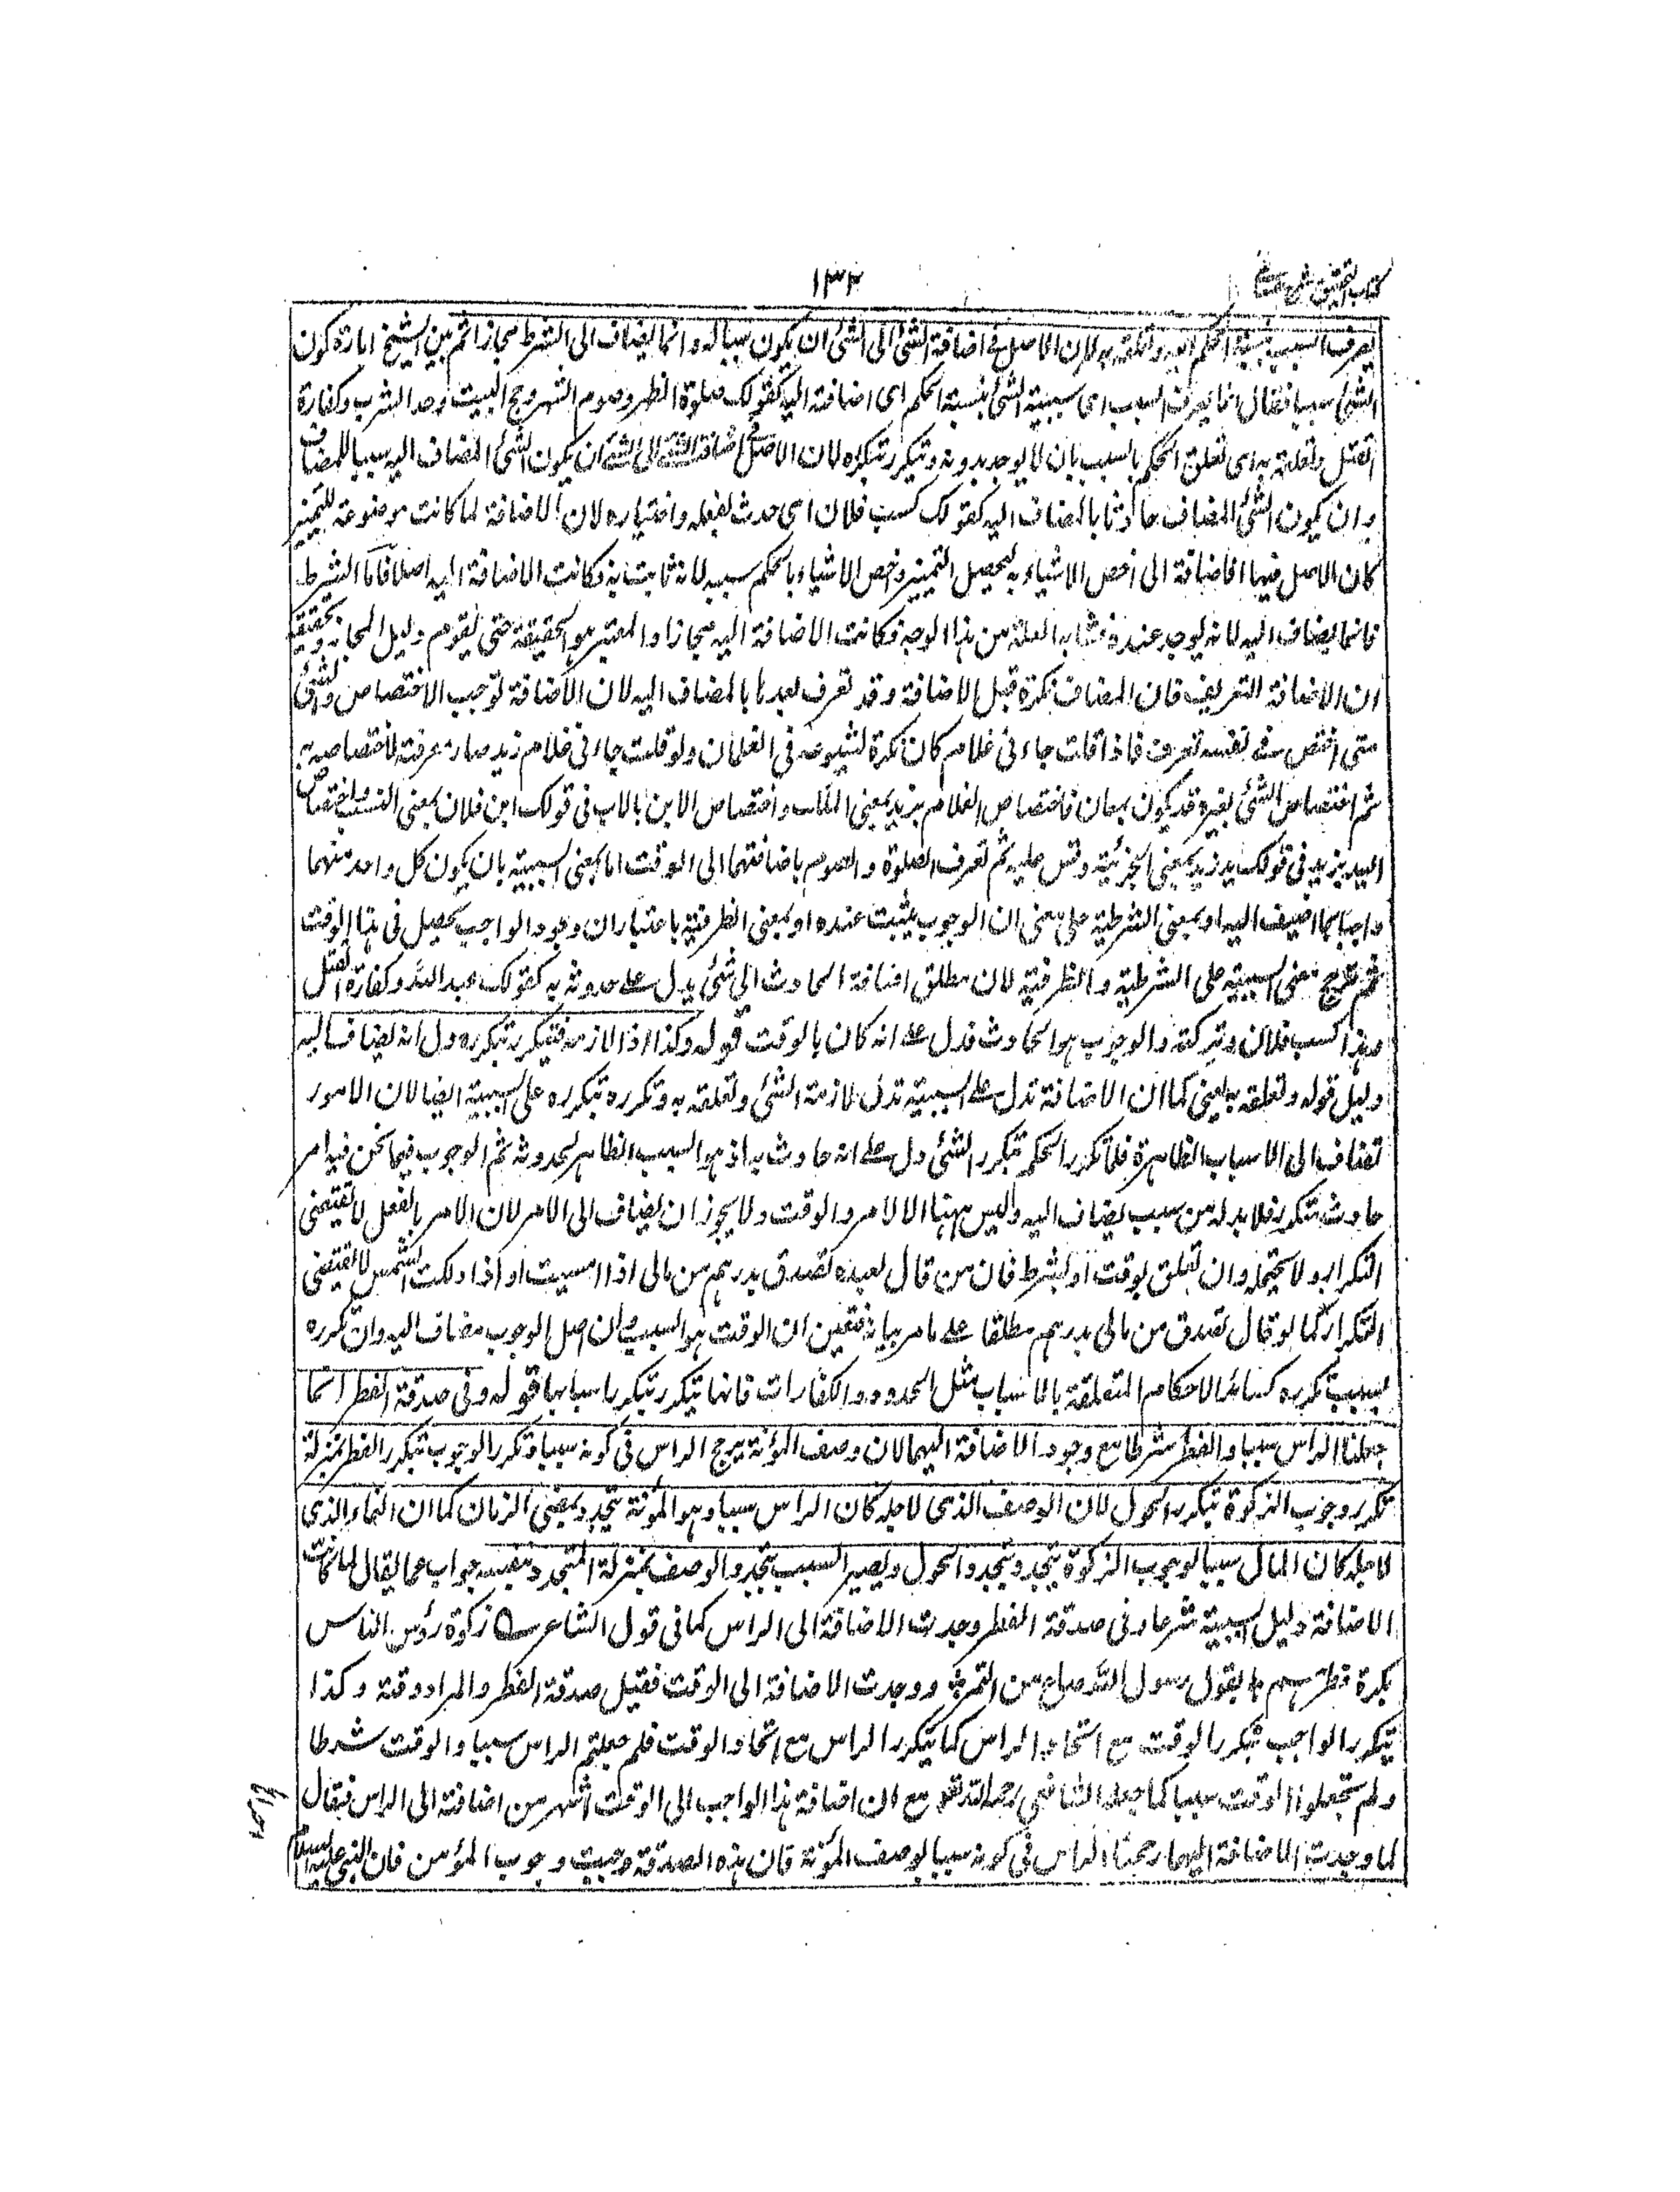 كتاب التحقيق شرح الحسامي
١٣٣
يعرف السبب بنسبة الحكم اليه وتعلقه به لان الاصل في اضافة الشئ الى الشئ ان يكون سببا له وانما يضاف الى الشرط مجازا ثم بين الشيخ امارة كون
الشئ سببا فقال انما يعرف السبب اى سببية الشئ بنسبة الحكم اى اضافته اليه كقولك صلوة الظهر وصوم الشهر وحج البيت وحد الشرب وكفارة
القتل وتعلقه به اى تعلق الحكم بالسبب بان لا يوجد بدونه ويتكرر بتكرره لان الاصل فى اضافة الشئ الى الشئ ان يكون الشئ المضاف اليه سببا للمضاف
وان يكون الشئ المضاف حادثا بالمضاف اليه كقولك كسب فلان اى حدث بفعله واختياره لان الاضافة لما كانت موضوعة للتمييز
كان الاصل فيها الاضافة الى اخص الاشياء به ليحصل التمييز واخص الاشياء بالحكم سببه لانه ثابت به فكانت الاضافة اليه اصلا فاما الشرط
فانما يضاف اليه لانه يوجد عنده فشابه العلة من هذا الوجه فكانت الاضافة اليه مجازا والمعتبر هو الحقيقة حتى يقوم دليل المجاز وتحقيقه
ان الاضافة للتعريف فان المضاف نكرة قبل الاضافة وقد تعرف بعدها بالمضاف اليه لان الاضافة توجب الاختصاص والشئ
متى اختص فى نفسه تعرف فاذا قلت جاءنى غلام كان نكرة لشيوعه فى الغلمان ولو قلت جاءنى غلام زيد صار معرفة لاختصاصه به
ثم اختصاص الشئ بغيره قد يكون بمعان فاختصاص الغلام بزيد بمعنى الملك واختصاص الابن بالاب فى قولك ابن فلان بمعنى النسب واختصاص
اليد بزيد فى قولك يد زيد بمعنى الجزئية وقس عليه ثم تعرف الصلوة والصوم باضافتهما الى الوقت اما بمعنى السببية بان يكون كل واحد منهما
واجبا بما اضيف اليه او بمعنى الشرطية على معنى ان الوجوب يثبت عنده او بمعنى الظرفية باعتبار ان وجود الواجب يحصل فى هذا الوقت
ثم ترجح معنى السببية على الشرطية والظرفية لان مطلق اضافة الحادث الى شئ يدل على حدوثه به كقولك عبد الله وكفارة القتل
وهذا كسب فلان وتركته والوجوب هو الحادث فدل على انه كان بالوقت قوله وكذا اذا لازمه فتكرر بتكرره دل انه يضاف اليه
دليل قوله وتعلقه به يعنى كما ان الاضافة تدل على السببية تدل ملازمة الشئ وتعلقه به وتكرره بتكرره على السببية ايضا لان الامور
تضاف الى الاسباب الظاهرة فلما تكرر الحكم بتكرر الشئ دل على انه حادث به اذ هو السبب الظاهر لحدوثه ثم الوجوب فيما نحن فيه امر
حادث متكرر فلا بد له من سبب يضاف اليه وليس ههنا الا الامر والوقت ولا يجوز ان يضاف الى الامر لان الامر بالفعل لا يقتضى
التكرار ولا يحتمله وان تعلق بوقت او بشرط فان من قال لعبده تصدق بدرهم من مالى اذا امسيت او اذا دلكت الشمس لا يقتضى
التكرار كما لو قال تصدق من مالى بدرهم مطلقا على ما مر بيانه فتعين ان الوقت هو السبب وان اصل الوجوب مضاف اليه وان تكرره
بسبب تكرره كسائر الاحكام المتعلقة بالاسباب مثل الحدود والكفارات فانها يتكرر بتكرر اسبابها قوله وفى صدقة الفطر انما
جعلنا الراس سببا والفطر شرطا مع وجود الاضافة اليهما لان وصف المؤنة يرجح الراس فى كونه سببا وتكرر الوجوب بتكرر الفطر بمنزلة
تكرر وجوب الزكوة بتكرر الحول لان الوصف الذى لاجله كان الراس سببا وهو المؤنة يتجدد بمضى الزمان كما ان النماء الذى
لاجله كان المال سببا لوجوب الزكوة يتجدد بتجدد الحول ويصير السبب بتجدد الوصف بمنزلة المتجدد بنفسه جواب عما يقال لما كانت
الاضافة دليل السببية شرعا وفى صدقة الفطر وجدت الاضافة الى الراس كما فى قول الشاعر زكوة رؤس الناس
بكرة فطرهم بقول رسول الله صاع من التمر ووجدت الاضافة الى الوقت فقيل صدقة الفطر والمراد وقته وكذا
يتكرر الواجب بتكرر الوقت مع اتحاد الراس كما يتكرر الراس مع اتحاد الوقت فلم جعلتم الراس سببا والوقت شرطا
ولم تجعلوا الوقت سببا كما جعله الشافعي رحمه الله تعم مع ان اضافة هذا الواجب الى الوقت اشهر من اضافته الى الراس فقال
لما وجدت الاضافة اليهما رجحنا الراس فى كونه سببا بوصف المؤنة فان هذه الصدقة وجبت وجوب المؤمن فان النبى عليه السلام